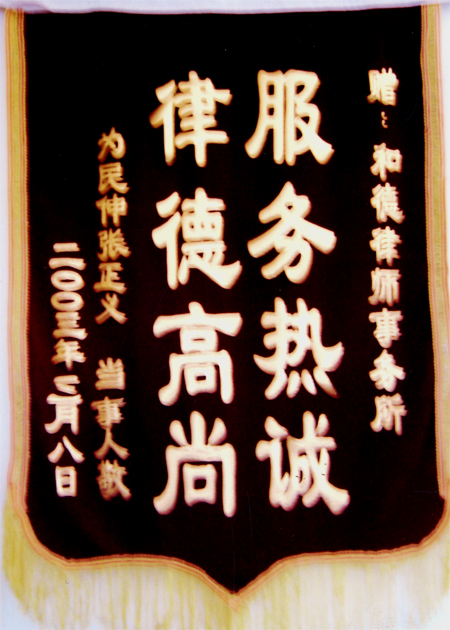 赠:和德律师事务所
服务热诚
律德高尚
为民伸张正义 当事人敬
二〇〇三年三月八日